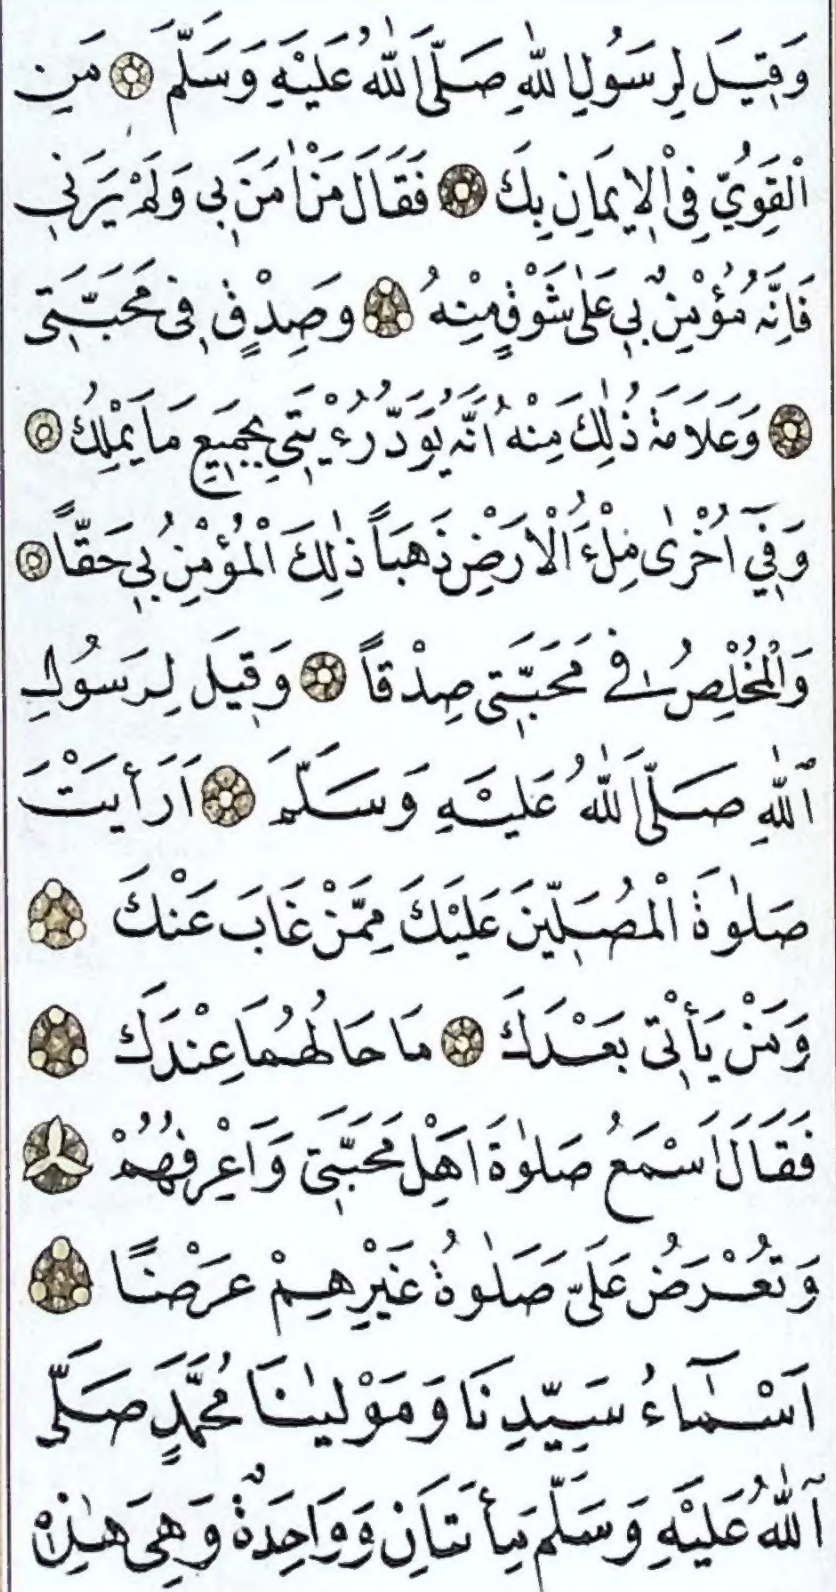 وَقِيلَ لِرَسُولِ اللّٰهِ صَلَّى اللّٰهُ عَلَيْهِ وَسَلَّمَ مَنِ
الْقَوِيُّ فِى الْاِيمَانِ بِكَ فَقَالَ مَنْ اٰمَنَ بِى وَلَمْ يَرَنِى
فَاِنَّهُ مُؤْمِنٌ بِى عَلٰى شَوْقٍ مِنْهُ وَصِدْقٍ فِى مَحَبَّتِى
وَعَلَامَةُ ذٰلِكَ مِنْهُ اَنَّهُ يُوَدُّ رُءْيَتِى بِجَمِيعِ مَا يَمْلِكُ
وَفِى اُخْرٰى مِلْءَ الْاَرْضِ ذَهَبًا ذٰلِكَ الْمُؤْمِنُ بِى حَقًّا
وَالْمُخْلِصُ فِى مَحَبَّتِى صِدْقًا وَقِيلَ لِرَسُولِ
اللّٰهِ صَلَّى اللّٰهُ عَلَيْهِ وَسَلَّمَ اَرَأَيْتَ
صَلٰوةَ الْمُصَلِّينَ عَلَيْكَ مِمَّنْ غَابَ عَنْكَ
وَمَنْ يَأْتِى بَعْدَكَ مَا حَالُهُمَا عِنْدَكَ
فَقَالَ اَسْمَعُ صَلٰوةَ اَهْلِ مَحَبَّتِى وَاَعْرِفُهُمْ
وَتُعْرَضُ عَلَىَّ صَلٰوةُ غَيْرِهِمْ عَرْضًا
اَسْمَاءُ سَيِّدِنَا وَمَوْلٰينَا مُحَمَّدٍ صَلَّى
اللّٰهُ عَلَيْهِ وَسَلَّمَ مِأَتَانِ وَوَاحِدَةٌ وَهِىَ هٰذِهْ